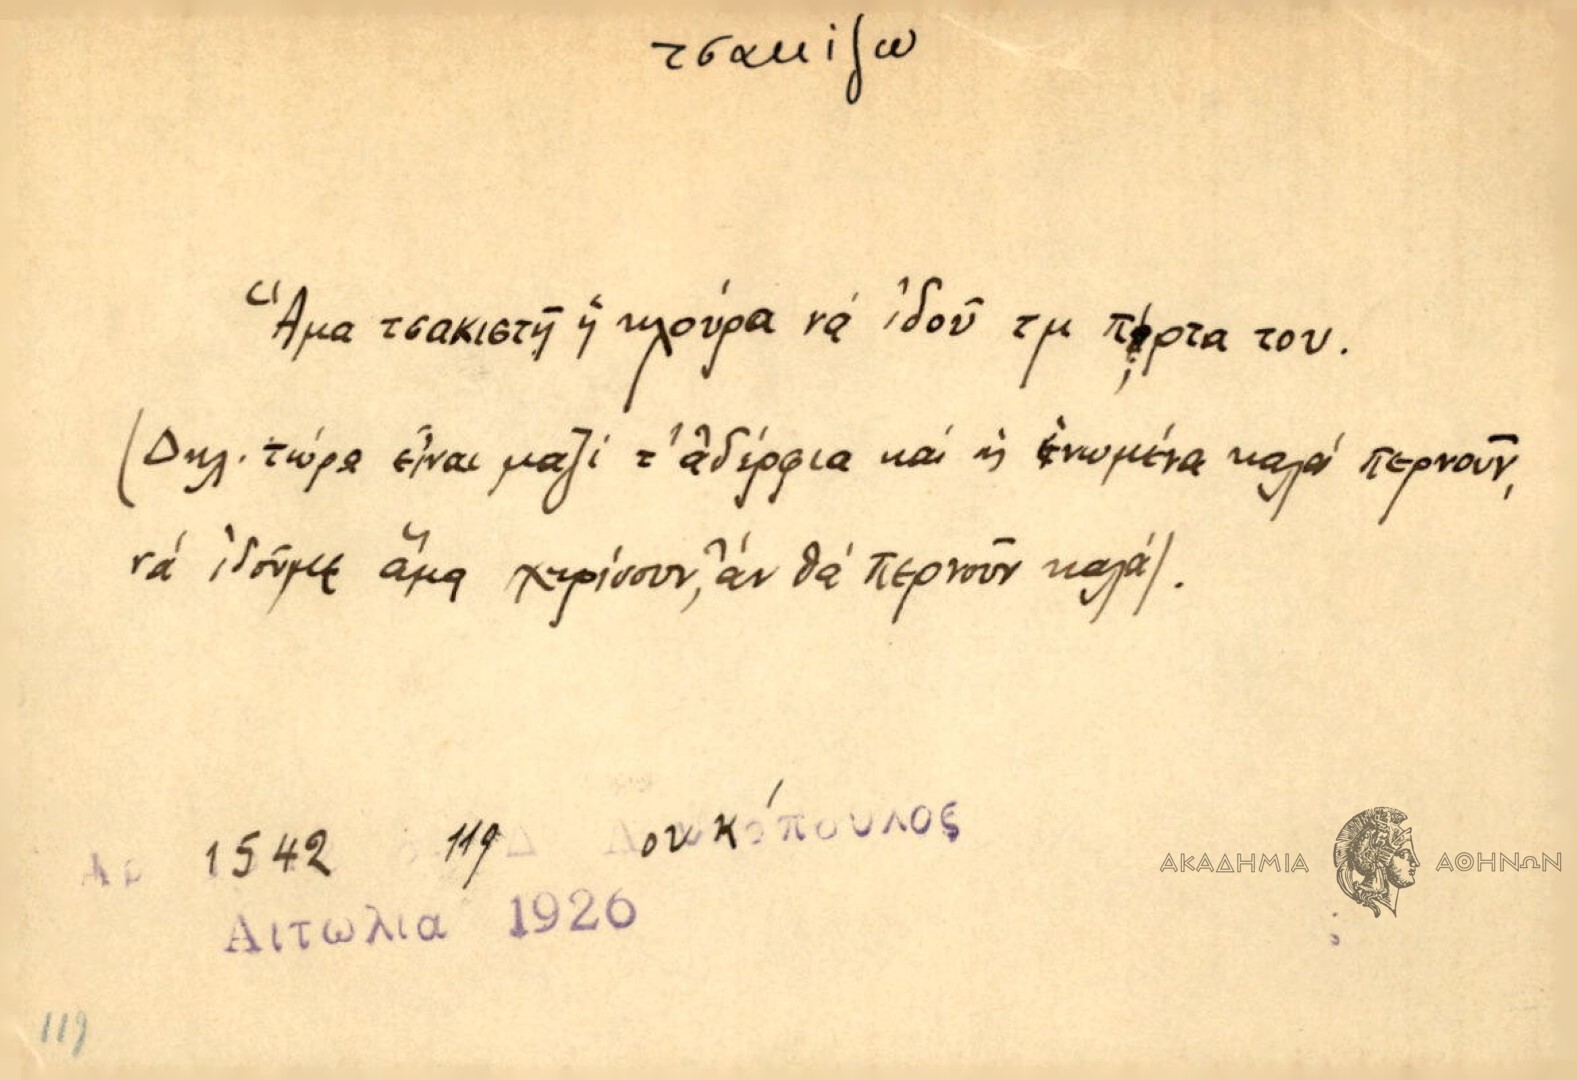 τσακίζω
Ἅμα τσακιστῇ ἡ κλούρα νά ἰδοῦ τμ πόρτα του.
(Δηλ. τώρα εἶναι μαζί τ' ἀδέρφια και ἡ ἑνωμένα καλά περνοῦν,
νά ἰδοῦμε ἅμα χωρίσουν, ἄν θά περνοῦν καλά).
1542 119 Δ Λουκόπουλος
Αιτωλία 1926
ΑΚΑΔΗΜΙΑ ΑΘΗΝΩΝ
119